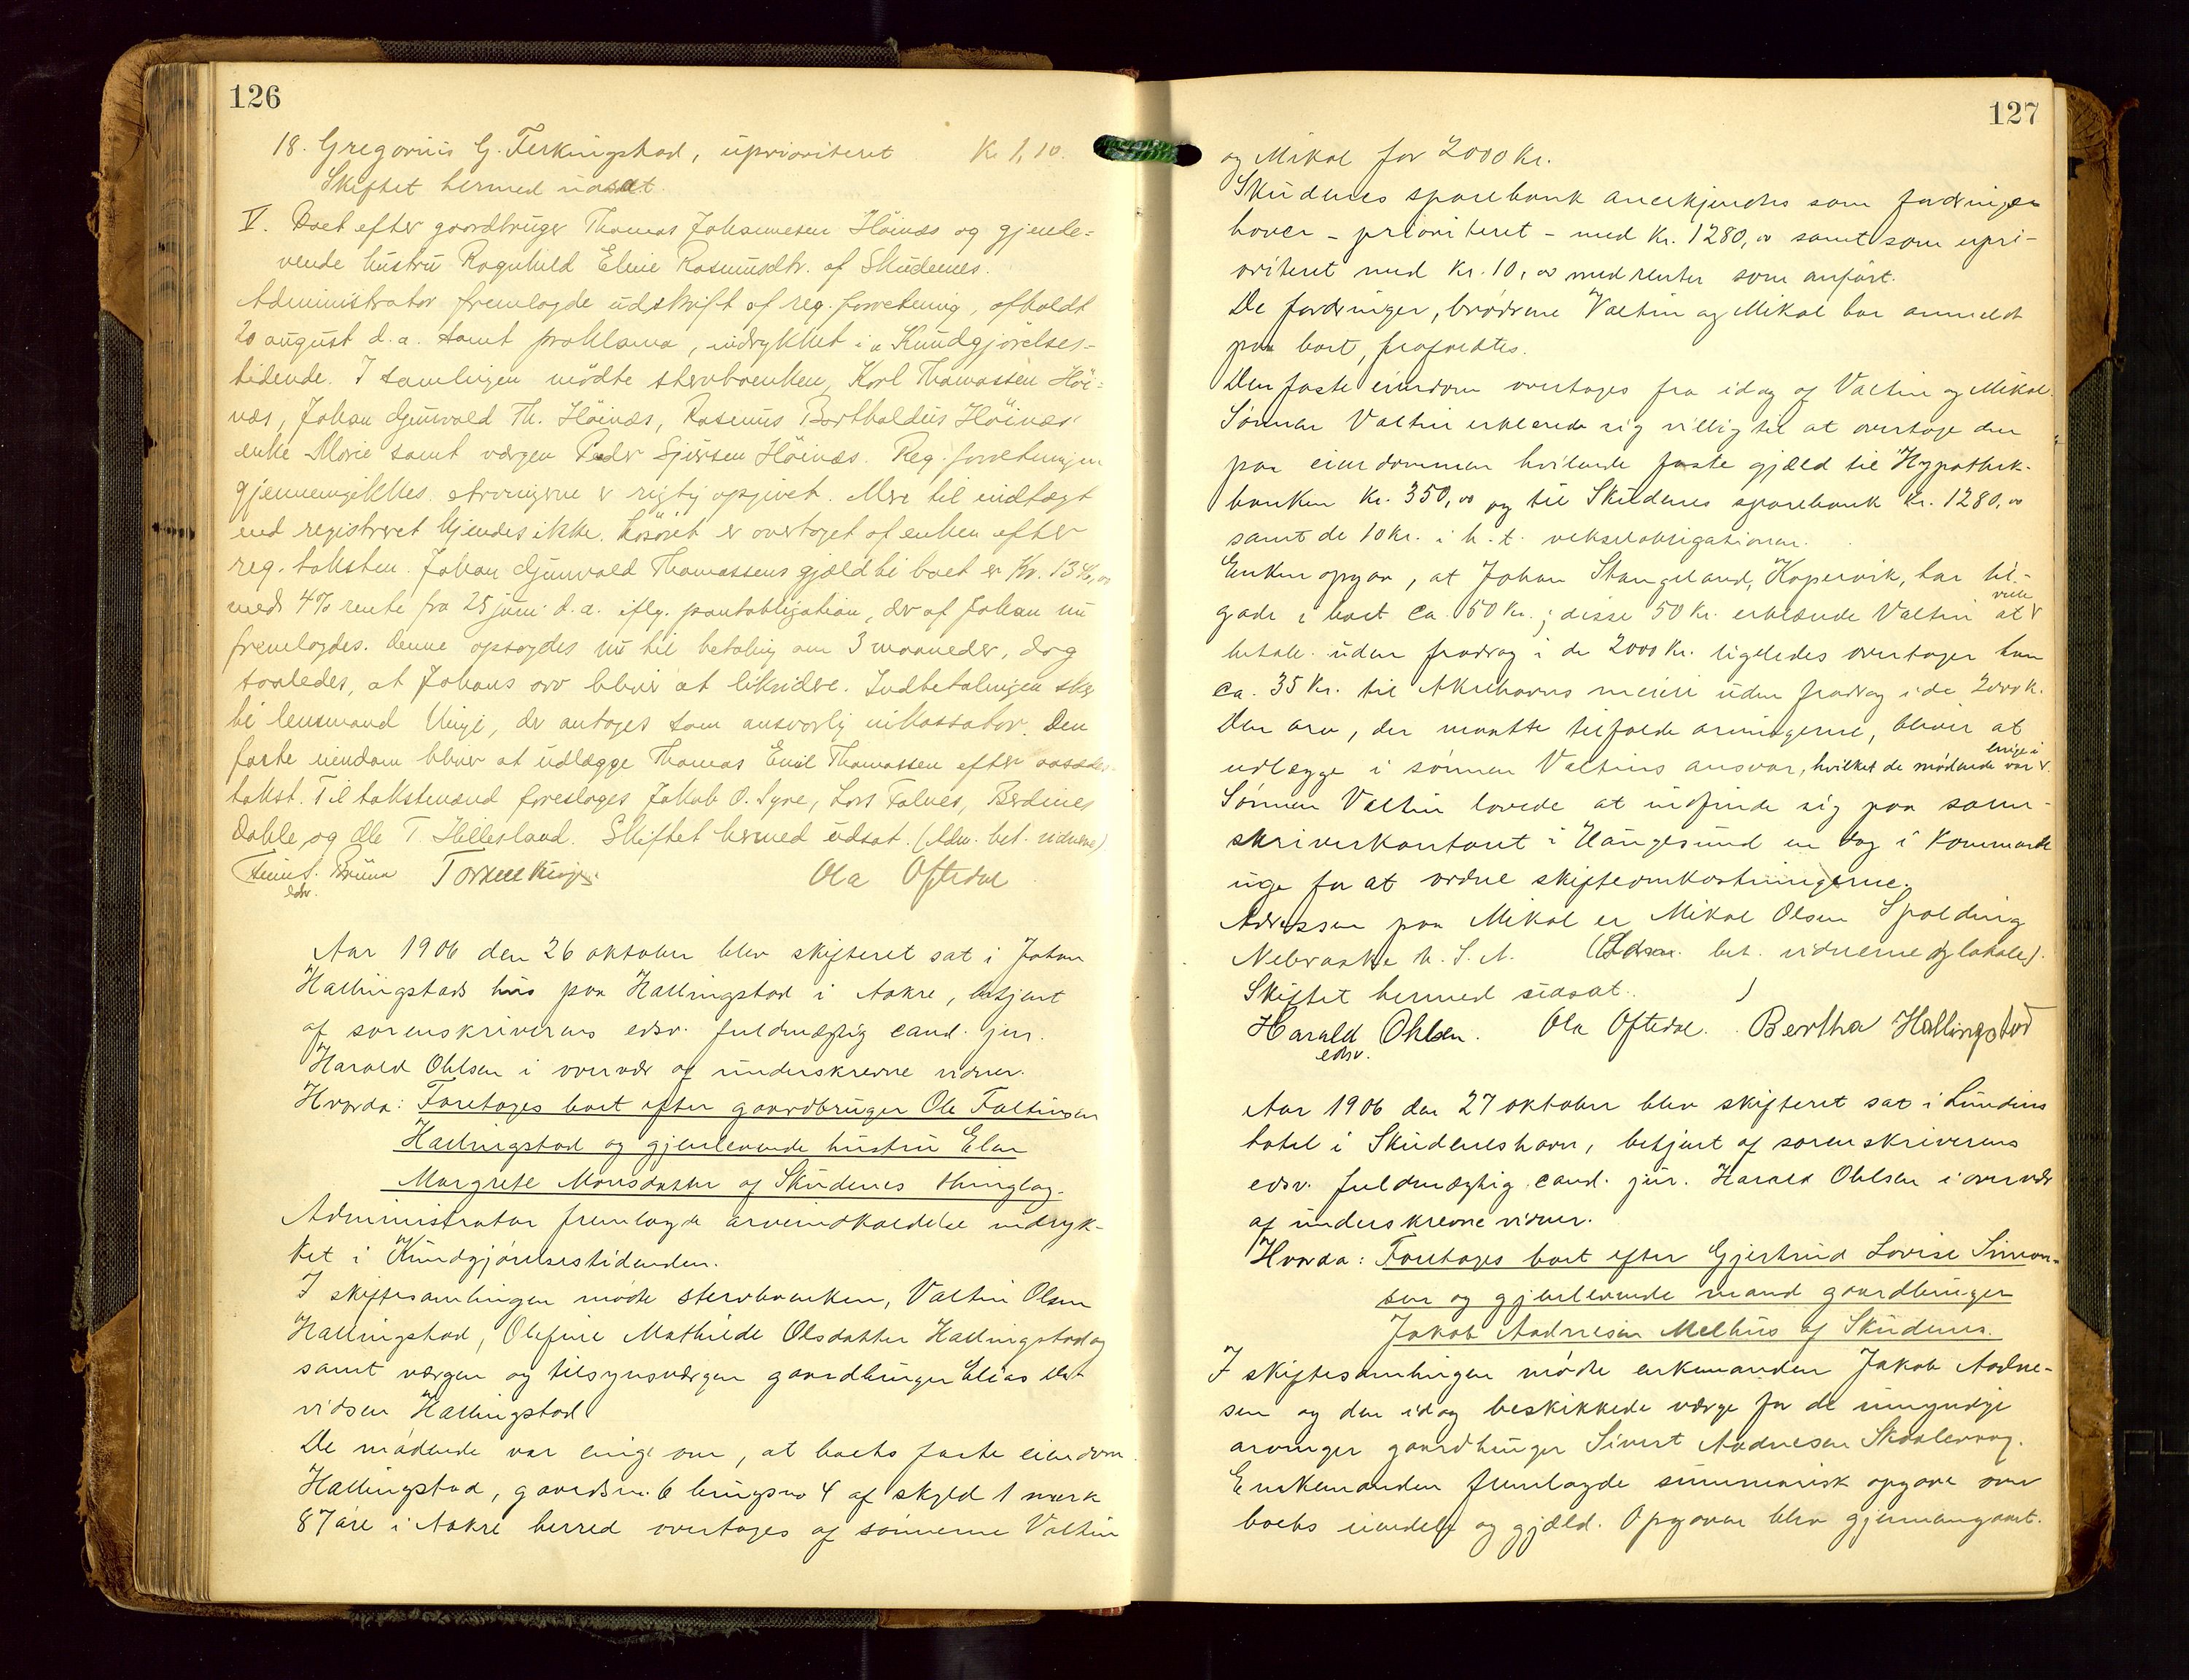 126
18. Gregorius G. Ferkingstad, uprioriteret Kr. 1,10.
Skiftet hermed udsat.
V. Boet efter gaardbruger Thomas Johannesen Höinæs og gjenle-
vende hustru Ragnhild Eline Rasmusdtr. af Skudenes.
Administrator fremlagde udskrift af reg. forretning, afholdt
20 august d. a. samt proklama, indrykket i Kundgjörelses-
tidende. I samlingen mödte stervboenken, Karl Thomassen Höi-
næs, Johan Gunvald Th. Höinæs, Rasmus Bertholdus Höinæs'
enke Marie samt værgen Peder Sjursen Höinæs. Reg. forretningen
gjennemgikkes. Arvingerne er rigtig opgivet. Mere til indtægt
end registreret kjendes ikke. Lösöret er overtaget af enken efter
reg. taksten. Johan Gunvald Thomassens gjæld til boet er Kr. 134,00
med 4% rente fra 25 juni d. a. iflg. pantobligation, der af Johan nu
fremlagdes. Denne opsagdes nu til betaling om 3 maaneder, dog
saaledes, at Johans arv bliver at likvidere. Indbetalingen sker
til lensmand Vinje, der antages som ansvarlig inkassator. Den
faste eiendom bliver at udlægge Thomas Emil Thomassen efter aasædes-
takst. Til takstmænd foreslages Jakob O. Syre, Lars Falnes, Berdines
Dahle og Ole T. Hillesland. Skiftet hermed udsat. (Adm. bet. vidnerne)
Bruun Ola Oftedal
edsv.
Aar 1906 den 26 oktober blev skifteret sat i Johan
Hallingstads hus paa Hallingstad i Aakre, betjent
af sorenskriverens edsv. fuldmægtig cand. jur.
Harald Ohlsen i overvær af underskrevne vidner.
Hvorda: Foretages boet efter gaardbruger Ole Faltinsen
Hallingstad og gjenlevende hustru Elen
Margrete Monsdatter af Skudenes thinglag.
Administrator fremlagde arveindkaldelse indryk-
ket i Kundgjörelsestidenden.
I skiftesamlingen mödte stervboenken, Valtin Olsen
Hallingstad, Olefine Mathilde Olsdatter Hallingstad og
samt værgen og tilsynsværgen gaardbruger Elias Et-
vidsen Hallingstad
De mödende var enige om, at boets faste eiendom
Hallingstad, gaardsnr. 6 brugsno 4 af skyld 1 mark
87 øre i Aakre herred overtages af sönnerne Valtin
127
og Mikal for 2000 Kr.
Skudenes sparebank anerkjendtes som fordrings-
haver - prioriteret - med Kr. 1280,00 samt som upri-
oriteret med Kr. 10,00 med renter som anfört.
De fordringer, brödrene Valtin og Mikal har anmeldt
paa boet, frafaldtes.
Den faste eiendom overtages fra idag af Valtin og Mikal.
Sönnen Valtin erklærede sig villig til at overtage den
paa eiendommen hvilende faste gjæld til Hypothek-
banken Kr. 350,00 og til Skudenes sparebank Kr. 1280,00
samt de 10 Kr. i h. t. vekselobligationen.
Enken opgav, at Johan Stangeland, Kopervik, har til-
gode i boet ca. 50 Kr.; disse 50 Kr. erklærede Valtin at ville
betale uden fradrag i de 2000 Kr. ligeledes overtager han
ca. 35 Kr. til Akrehavns meieri uden fradrag i de 2000 K.
Den arv, der maatte tilfalde arvingerne, bliver at
udlægge i sönnen Valtins ansvar, hvilket de mödende var enige i.
Sönnen Valtin lovede at indfinde sig paa soren-
skriverkontoret i Haugesund en dag i kommende
uge for at ordne skifteomkostningerne.
Adressen paa Mikal er Mikal Olsen Spalding
Nebraska U. S. A. (Adm. bet. vidnerne og lokale).
Skiftet hermed udsat.
Harald Ohlsen. Ola Oftedal. Bertha Hallingstad
edsv.
Aar 1906 den 27 oktober blev skifteret sat i Lundins
hotel i Skudeneshavn, betjent af sorenskriverens
edsv. fuldmægtig cand. jur. Harald Ohlsen i overvær
af underskrevne vidner.
Hvorda: Foretages boet efter Gjertrud Lovise Simon-
sen og gjenlevende mand gaardbruger
Jakob Aadnesen Melhus af Skudenes.
I skiftesamlingen mödte enkemanden Jakob Aadne-
sen og den idag beskikkede værge for de umyndige
arvinger gaardbruger Sivert Aadnesen Skaalevaag.
Enkemanden fremlagde summarisk opgave over
boets eiendele og gjæld. Opgaven blev gjennemgaaet.